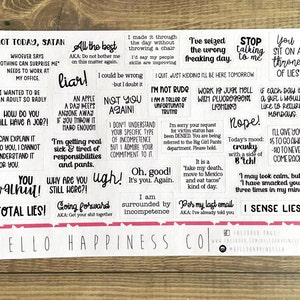 NOT TODAY, SATAN
All the best
AKA: Do not bother me
on this matter again.
I made it through
the day without
throwing a chair
I'd say my people
skills are improving
I've seized
the wrong
freaking day.
STOP
talking
to me
YOU
SIT ON A
THRONE
OF LIES
WHOEVER SAYS
NOTHING CAN SURPRISE ME
NEEDS TO WORK AT
MY OFFICE.
liar!
I could be wrong
-but I doubt it
I QUIT. JUST KIDDING I'LL BE HERE TOMORROW
I WANTED TO BE
AN ADULT SO BADLY
AN APPLE
A DAY KEEPS
ANYONE AWAY
IF YOU THROW IT
HARD ENOUGH
NOT YOU
AGAIN
I'M NOT RUDE
I AM A TEACHER OF
UNFORTUNATE
TRUTHS
WORK IS JUST HELL
WITH FLUORESCENT
LIGHTING
HOW DO YOU
STILL HAVE A JOB?!
I DON'T UNDERSTAND
YOUR SPECIFIC TYPE
OF INCOMPETENCE
BUT I ADMIRE YOUR
COMMITMENT TO IT.
I'm sorry your request
for victim status has
been DENIED. You are being
referred to the Big Girl Pants
Department. Please hold.
Nope!
I CAN EXPLAIN IT
TO YOU, I CANNOT
UNDERSTAND IT
FOR YOU.
I'm getting real
sick & tired of
responsibilities
and pants.
Today's mood:
cranky
with a
of
WHY ARE YOU
STILL HERE?
ugh!
Oh, good!
It's you. Again.
It is a
"take my death,
move to Mexico
and eat tacos"
kind of day.
I may look calm, but
I have smacked you
three times in my mind.
TOTAL LIES!
Going forward
AKA: Get your shit together
I am
surrounded by
incompetence
Per my last email
AKA: I've already told you
I SENSE LIES
HELLO HAPPINESS CO